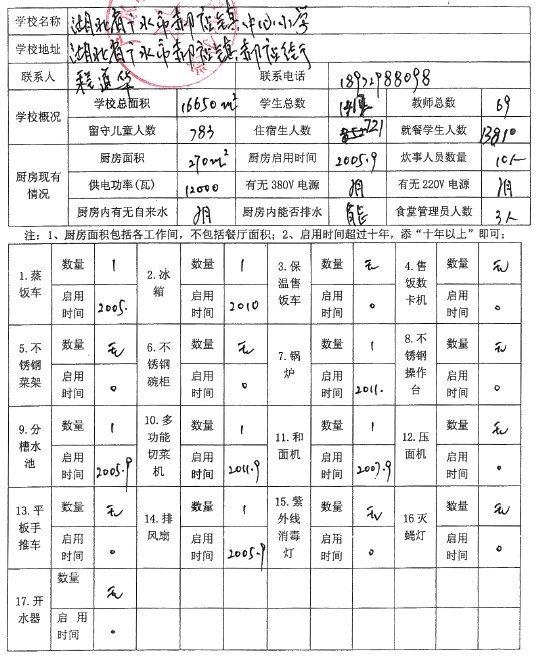 学校名称 湖北省 水市 镇中心小学
学校地址 湖北省 水市 镇
联系人 程道华 联系电话 18972988098
学校概况 学校总面积 16650m² 学生总数 教师总数 69
留守儿童人数 783 住宿生人数 721 就餐学生人数
厨房现有情况 厨房面积 270m² 厨房启用时间 2005.9 炊事人员数量 10人
供电功率(瓦) 12000 有无380V电源 有 有无220V电源 有
厨房内有无自来水 有 厨房内能否排水 能 食堂管理员人数 3人
注：1、厨房面积包括各工作间，不包括餐厅面积；2、启用时间超过十年，添“十年以上”即可；
1.蒸饭车 数量 1 2.冰箱 数量 1 3.保温售饭车 数量 无 4.售饭数卡机 数量 无
启用时间 2005. 启用时间 2010 启用时间 0 启用时间 0
5.不锈钢菜架 数量 无 6.不锈钢碗柜 数量 无 7.锅炉 数量 1 8.不锈钢操作台 数量 无
启用时间 0 启用时间 0 启用时间 2011. 启用时间 0
9.分槽水池 数量 1 10.多功能切菜机 数量 1 11.和面机 数量 1 12.压面机 数量 无
启用时间 2005.9 启用时间 2011.9 启用时间 2007.9 启用时间 0
13.平板手推车 数量 无 14.排风扇 数量 1 15.紫外线消毒灯 数量 无 16灭蝇灯 数量 无
启用时间 0 启用时间 2005.9 启用时间 0 启用时间 0
17.开水器 数量 无
启用时间 0